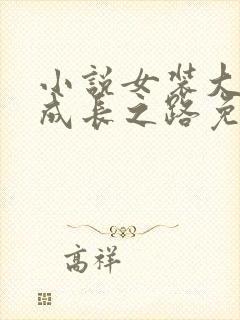 小說女裝大
成長之路免
高祥